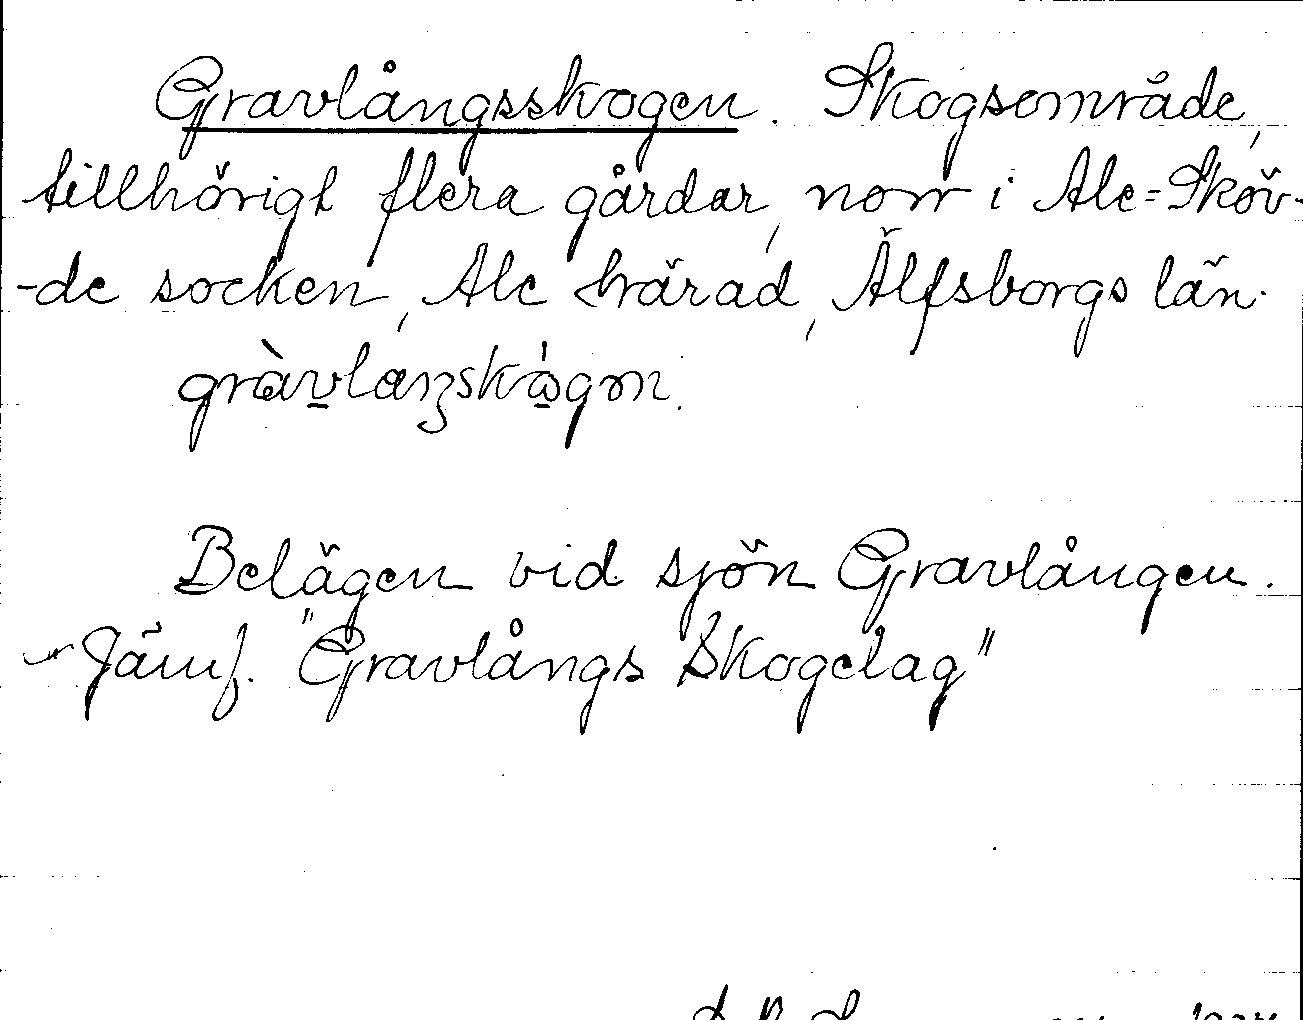 Gravlångsskogen. Skogsområde,
tillhörigt flera gårdar, norr i Ale=Sköv-
-de socken, Ale härad, Älfsborgs län.
Belägen vid sjön Gravlången.
Jämf. "Gravlångs Skogelag"